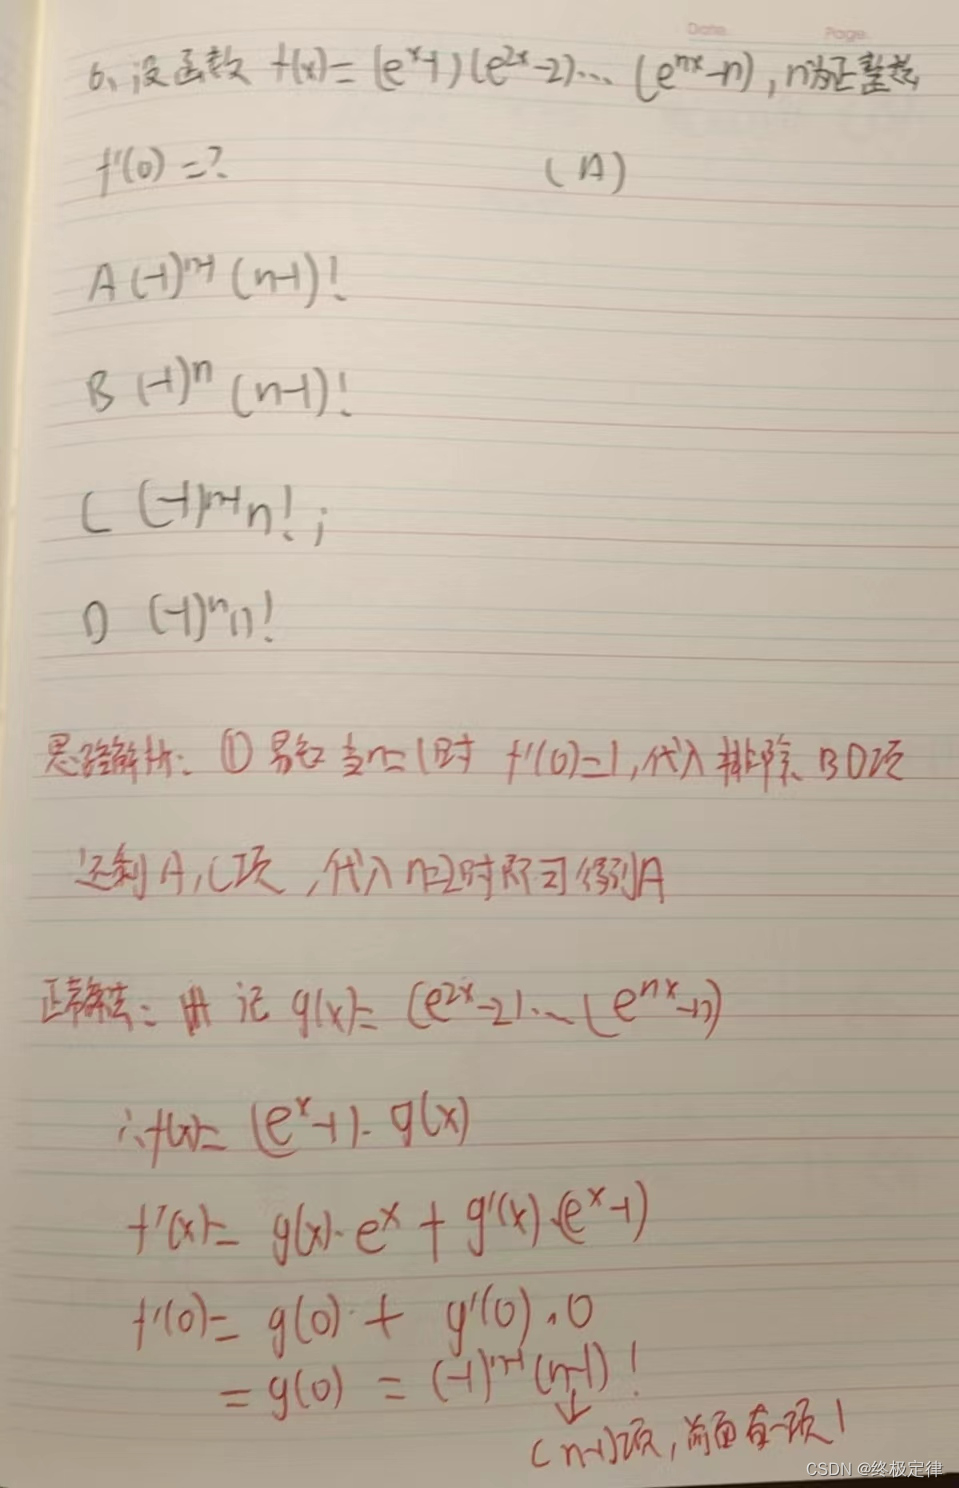 Date. Page.
6、设函数 f(x)=(eˣ-1)(e²ˣ-2)…(eⁿˣ-n),n为正整数
f'(0)=? (A)
A (-1)ⁿ⁻¹(n-1)!
B (-1)ⁿ(n-1)!
C (-1)ⁿ⁻¹n!;
D (-1)ⁿn!
思路解析:① 易知当n=1时 f'(0)=1,代入排除BD项
还剩A,C项,代入n=2时即可得到A
正常解法: 记 g(x)=(e²ˣ-2)…(eⁿˣ-n)
∴f(x)=(eˣ-1)·g(x)
f'(x)=g(x)·eˣ+g'(x)·(eˣ-1)
f'(0)=g(0)+g'(0)·0
=g(0)=(-1)ⁿ⁻¹(n-1)!
↓
(n-1)项,前面有一项1
CSDN @终极定律